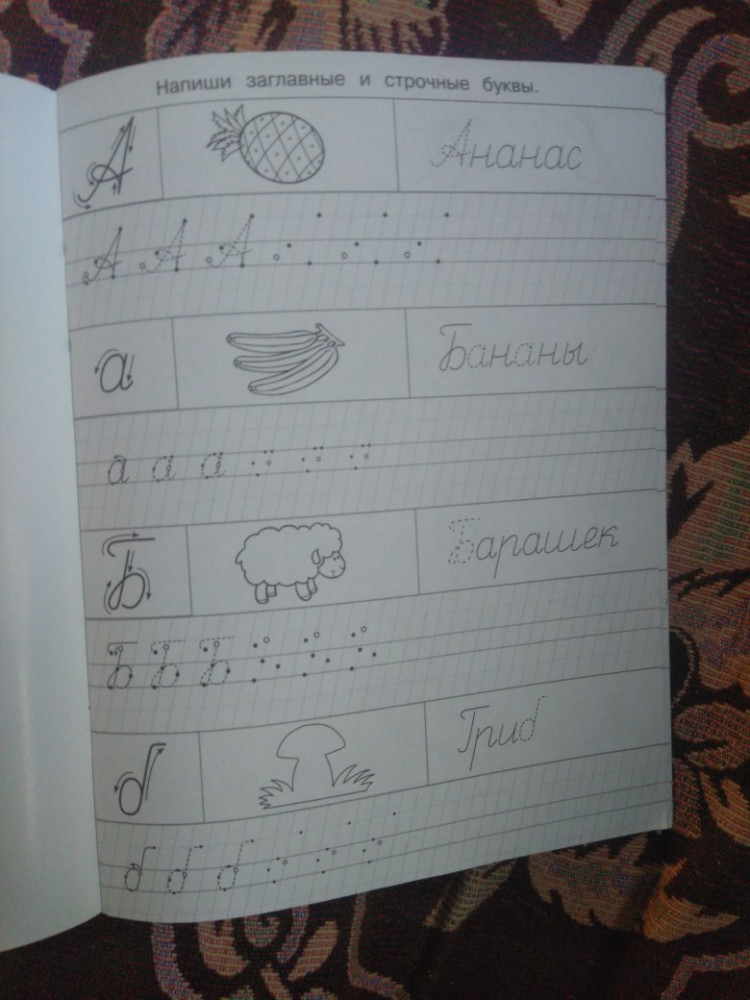 Напиши заглавные и строчные буквы.
А Ананас
А А А
а Бананы
а а а
Б Барашек
Б Б Б
б Гриб
б б б